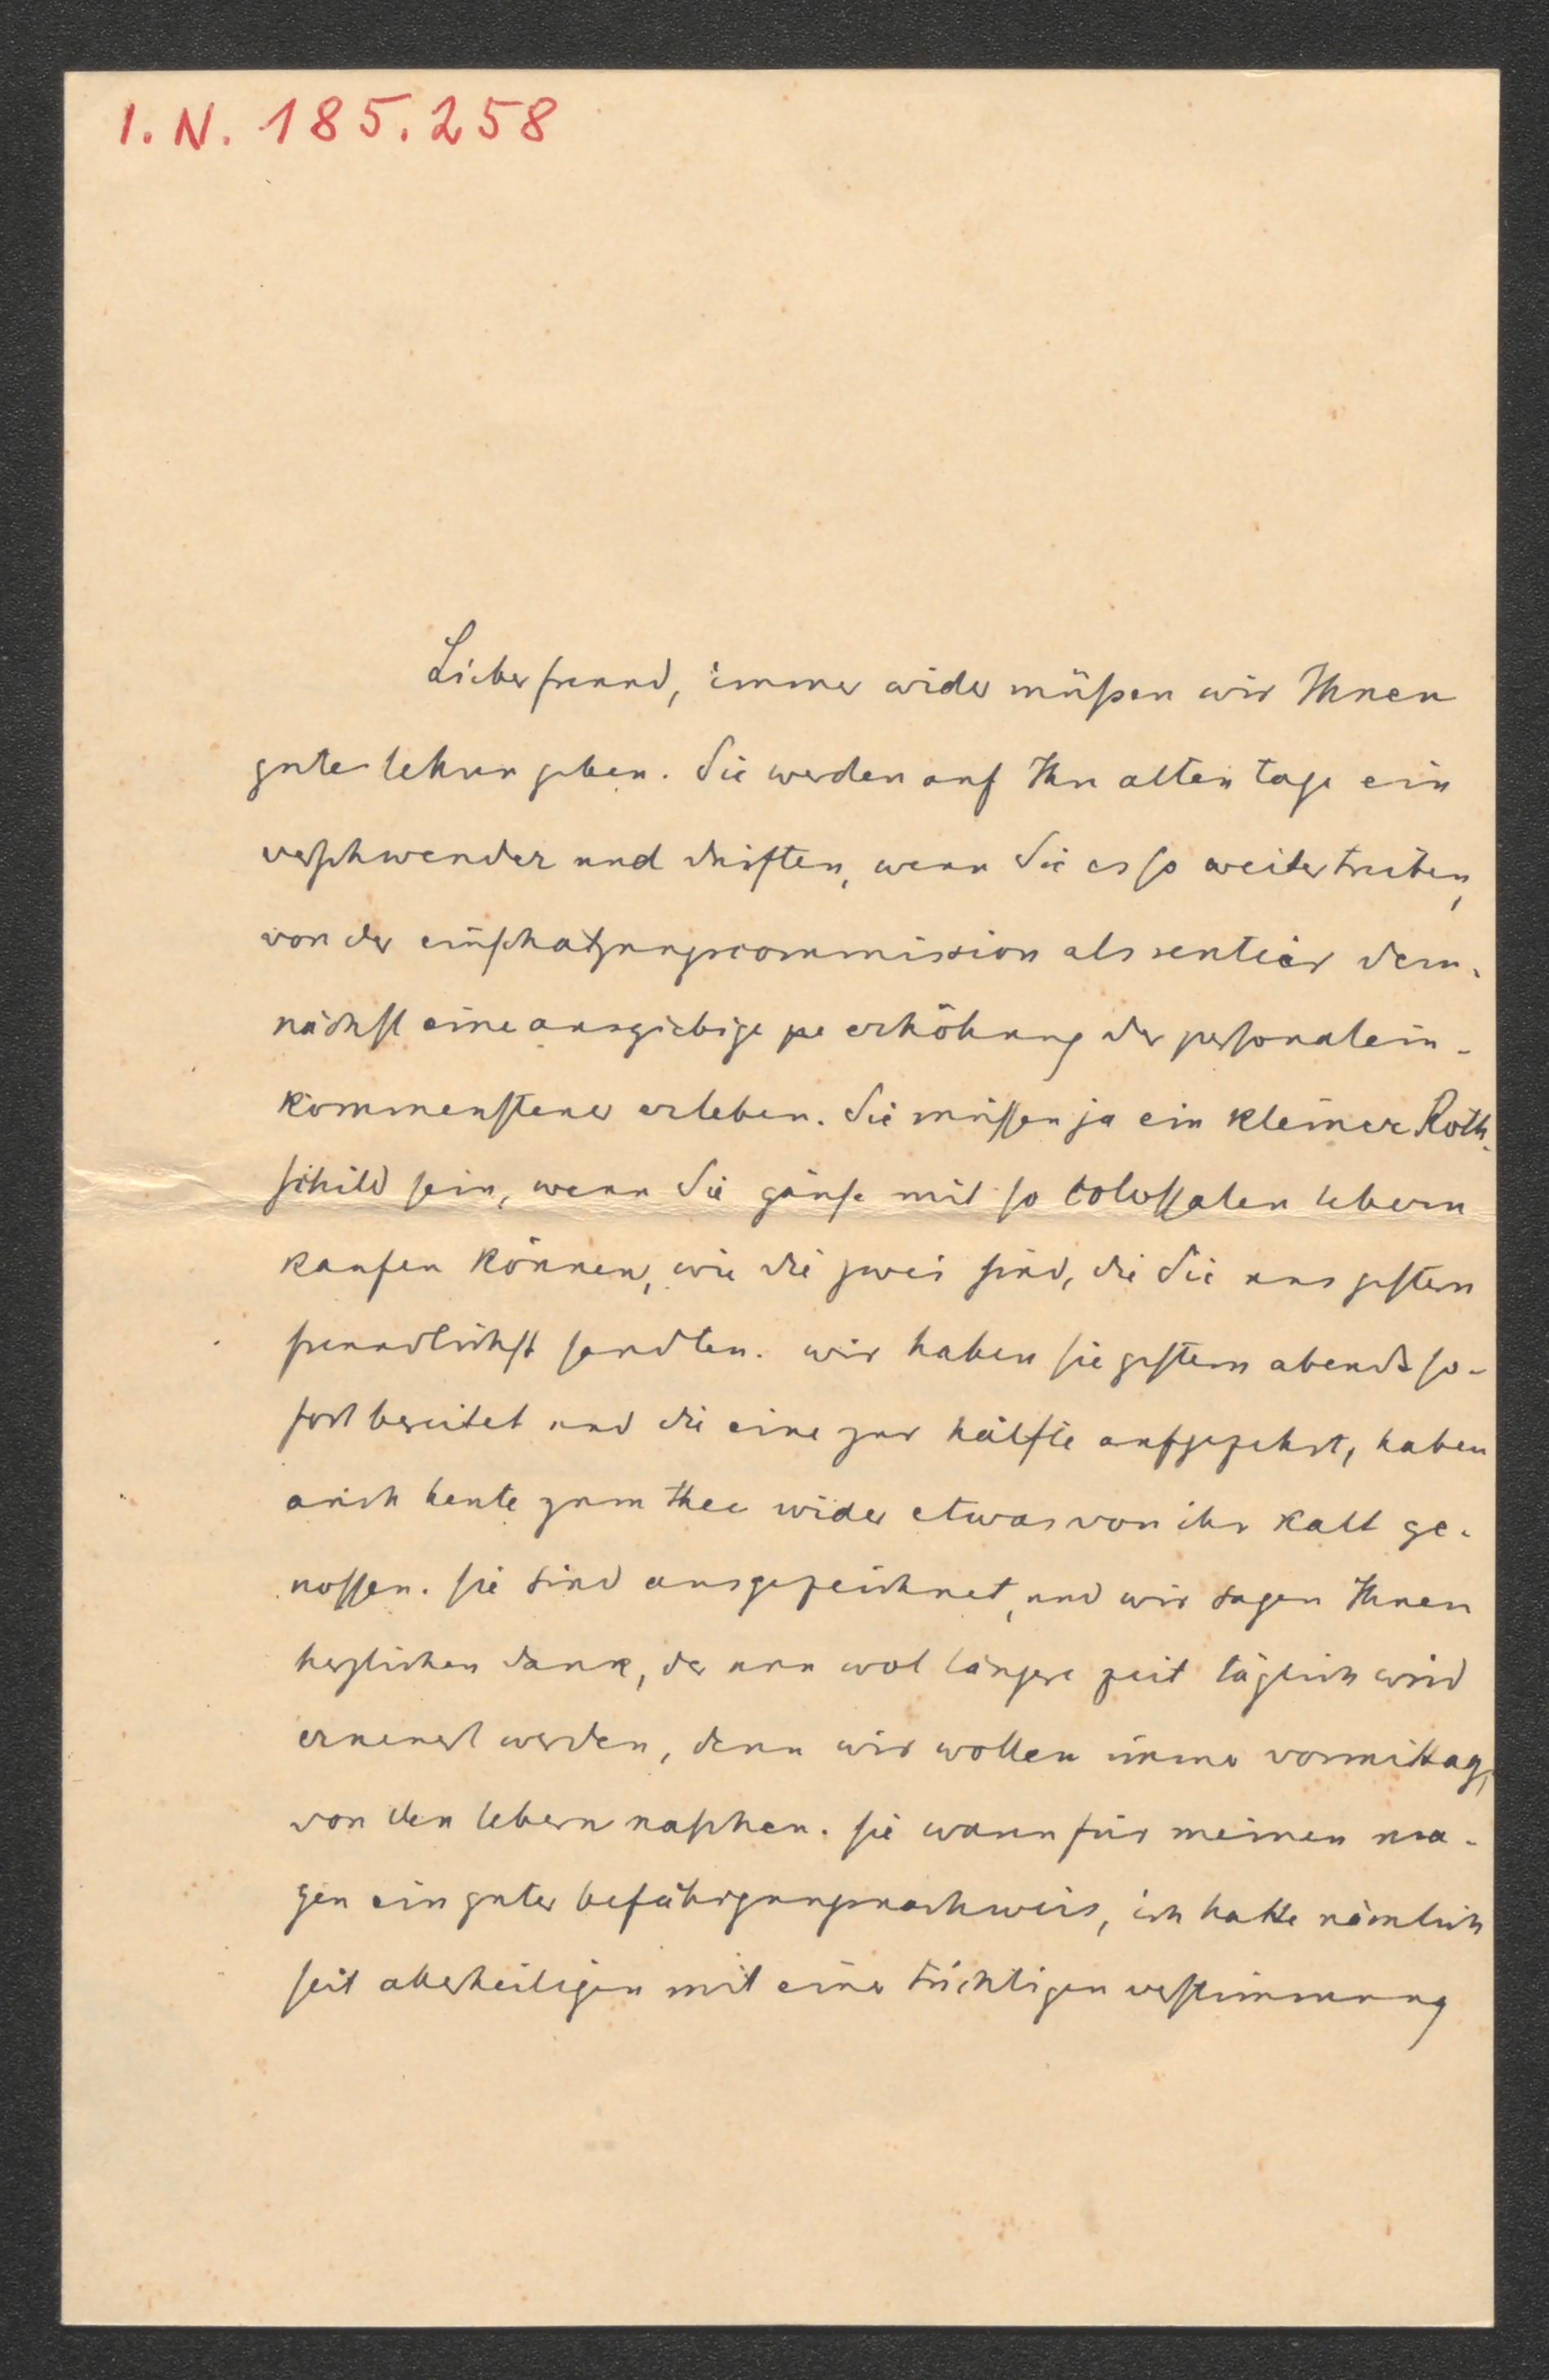 I. N. 185.258
Lieber freund, immer wider müßen wir Ihnen
gute lehren geben. Sie werden auf Ihre alten tage ein
verschwender und dürften, wenn Sie es so weiter treiben,
von der einschatzungscommission als rentier dem-
nächst eine ausgiebige pe erhöhung der personalein-
kommensteuer erleben. Sie müssen ja ein kleiner Roth-
schild sein, wenn Sie gänse mit so colossalen lebern
kaufen können, wie die zwei sind, die Sie uns gestern
freundlichst sandten. wir haben sie gestern abends so-
fort bereitet und die eine zur hälfte aufgezehrt, haben
auch heute zum thee wider etwas von ihr kalt ge-
nossen. sie sind ausgezeichnet, und wir sagen Ihnen
herzlichen dank, der nun wol längere zeit täglich wird
erneuert werden, denn wir wollen immer vormittag,
von den lebern naschen. sie waren für meinen ma-
gen ein guter befähigungsnachweis, ich hatte nämlich
seit allerheiligen mit einer tüchtigen verstimmung